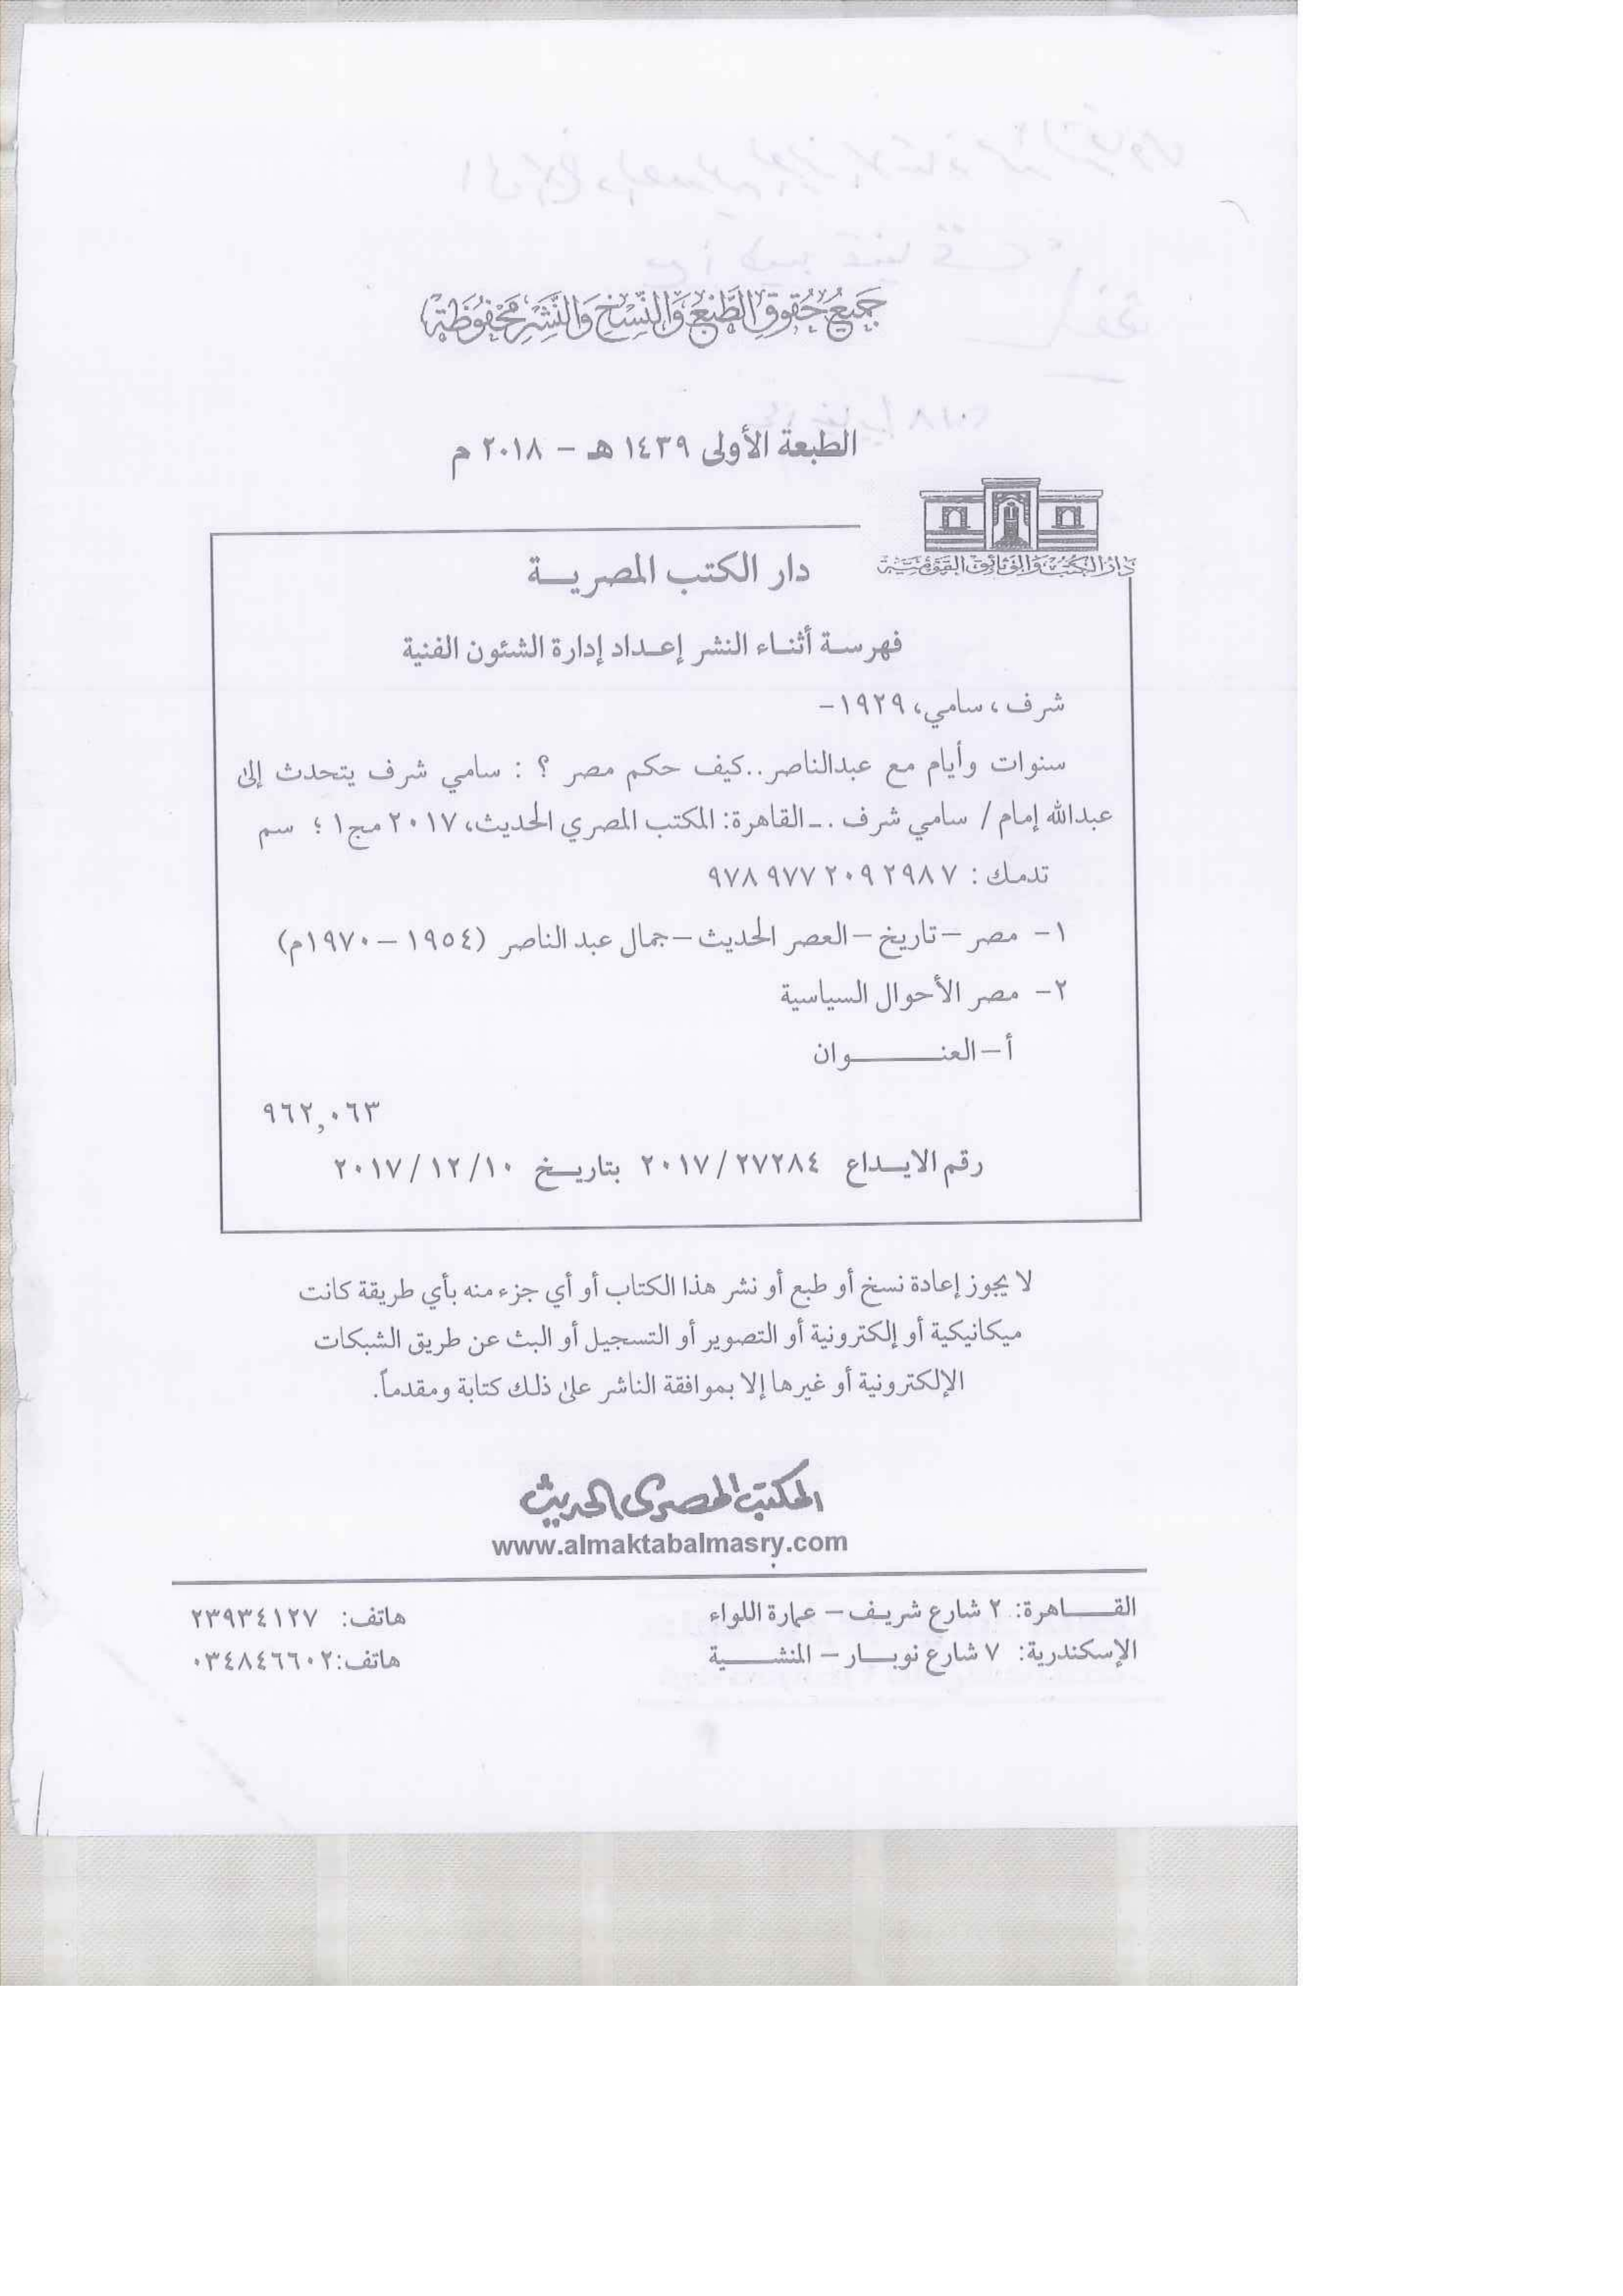 جميع حقوق الطبع والنسخ والنشر محفوظة
الطبعة الأولى ١٤٣٩ هـ – ٢٠١٨ م
دار الكتب والوثائق القومية
دار الكتب المصرية
فهرسة أثناء النشر إعداد إدارة الشئون الفنية
شرف، سامي، ١٩٢٩-
سنوات وأيام مع عبدالناصر..كيف حكم مصر ؟ : سامي شرف يتحدث إلى
عبدالله إمام/ سامي شرف .ـ القاهرة: المكتب المصري الحديث، ٢٠١٧ مج١ ؛ سم
تدمك : ٩٧٨ ٩٧٧ ٢٠٩ ٢٩٨٧
١- مصر – تاريخ – العصر الحديث – جمال عبد الناصر (١٩٥٤ – ١٩٧٠م)
٢- مصر الأحوال السياسية
أ – العنوان
٩٦٢,٠٦٣
رقم الايداع ٢٠١٧/٢٧٢٨٤ بتاريخ ٢٠١٧/١٢/١٠
لا يجوز إعادة نسخ أو طبع أو نشر هذا الكتاب أو أي جزء منه بأي طريقة كانت
ميكانيكية أو إلكترونية أو التصوير أو التسجيل أو البث عن طريق الشبكات
الإلكترونية أو غيرها إلا بموافقة الناشر على ذلك كتابة ومقدماً.
المكتب المصرى الحديث
www.almaktabalmasry.com
القاهرة: ٢ شارع شريف – عمارة اللواء هاتف: ٢٣٩٣٤١٢٧
الإسكندرية: ٧ شارع نوبار – المنشية هاتف:٠٣٤٨٤٦٦٠٢